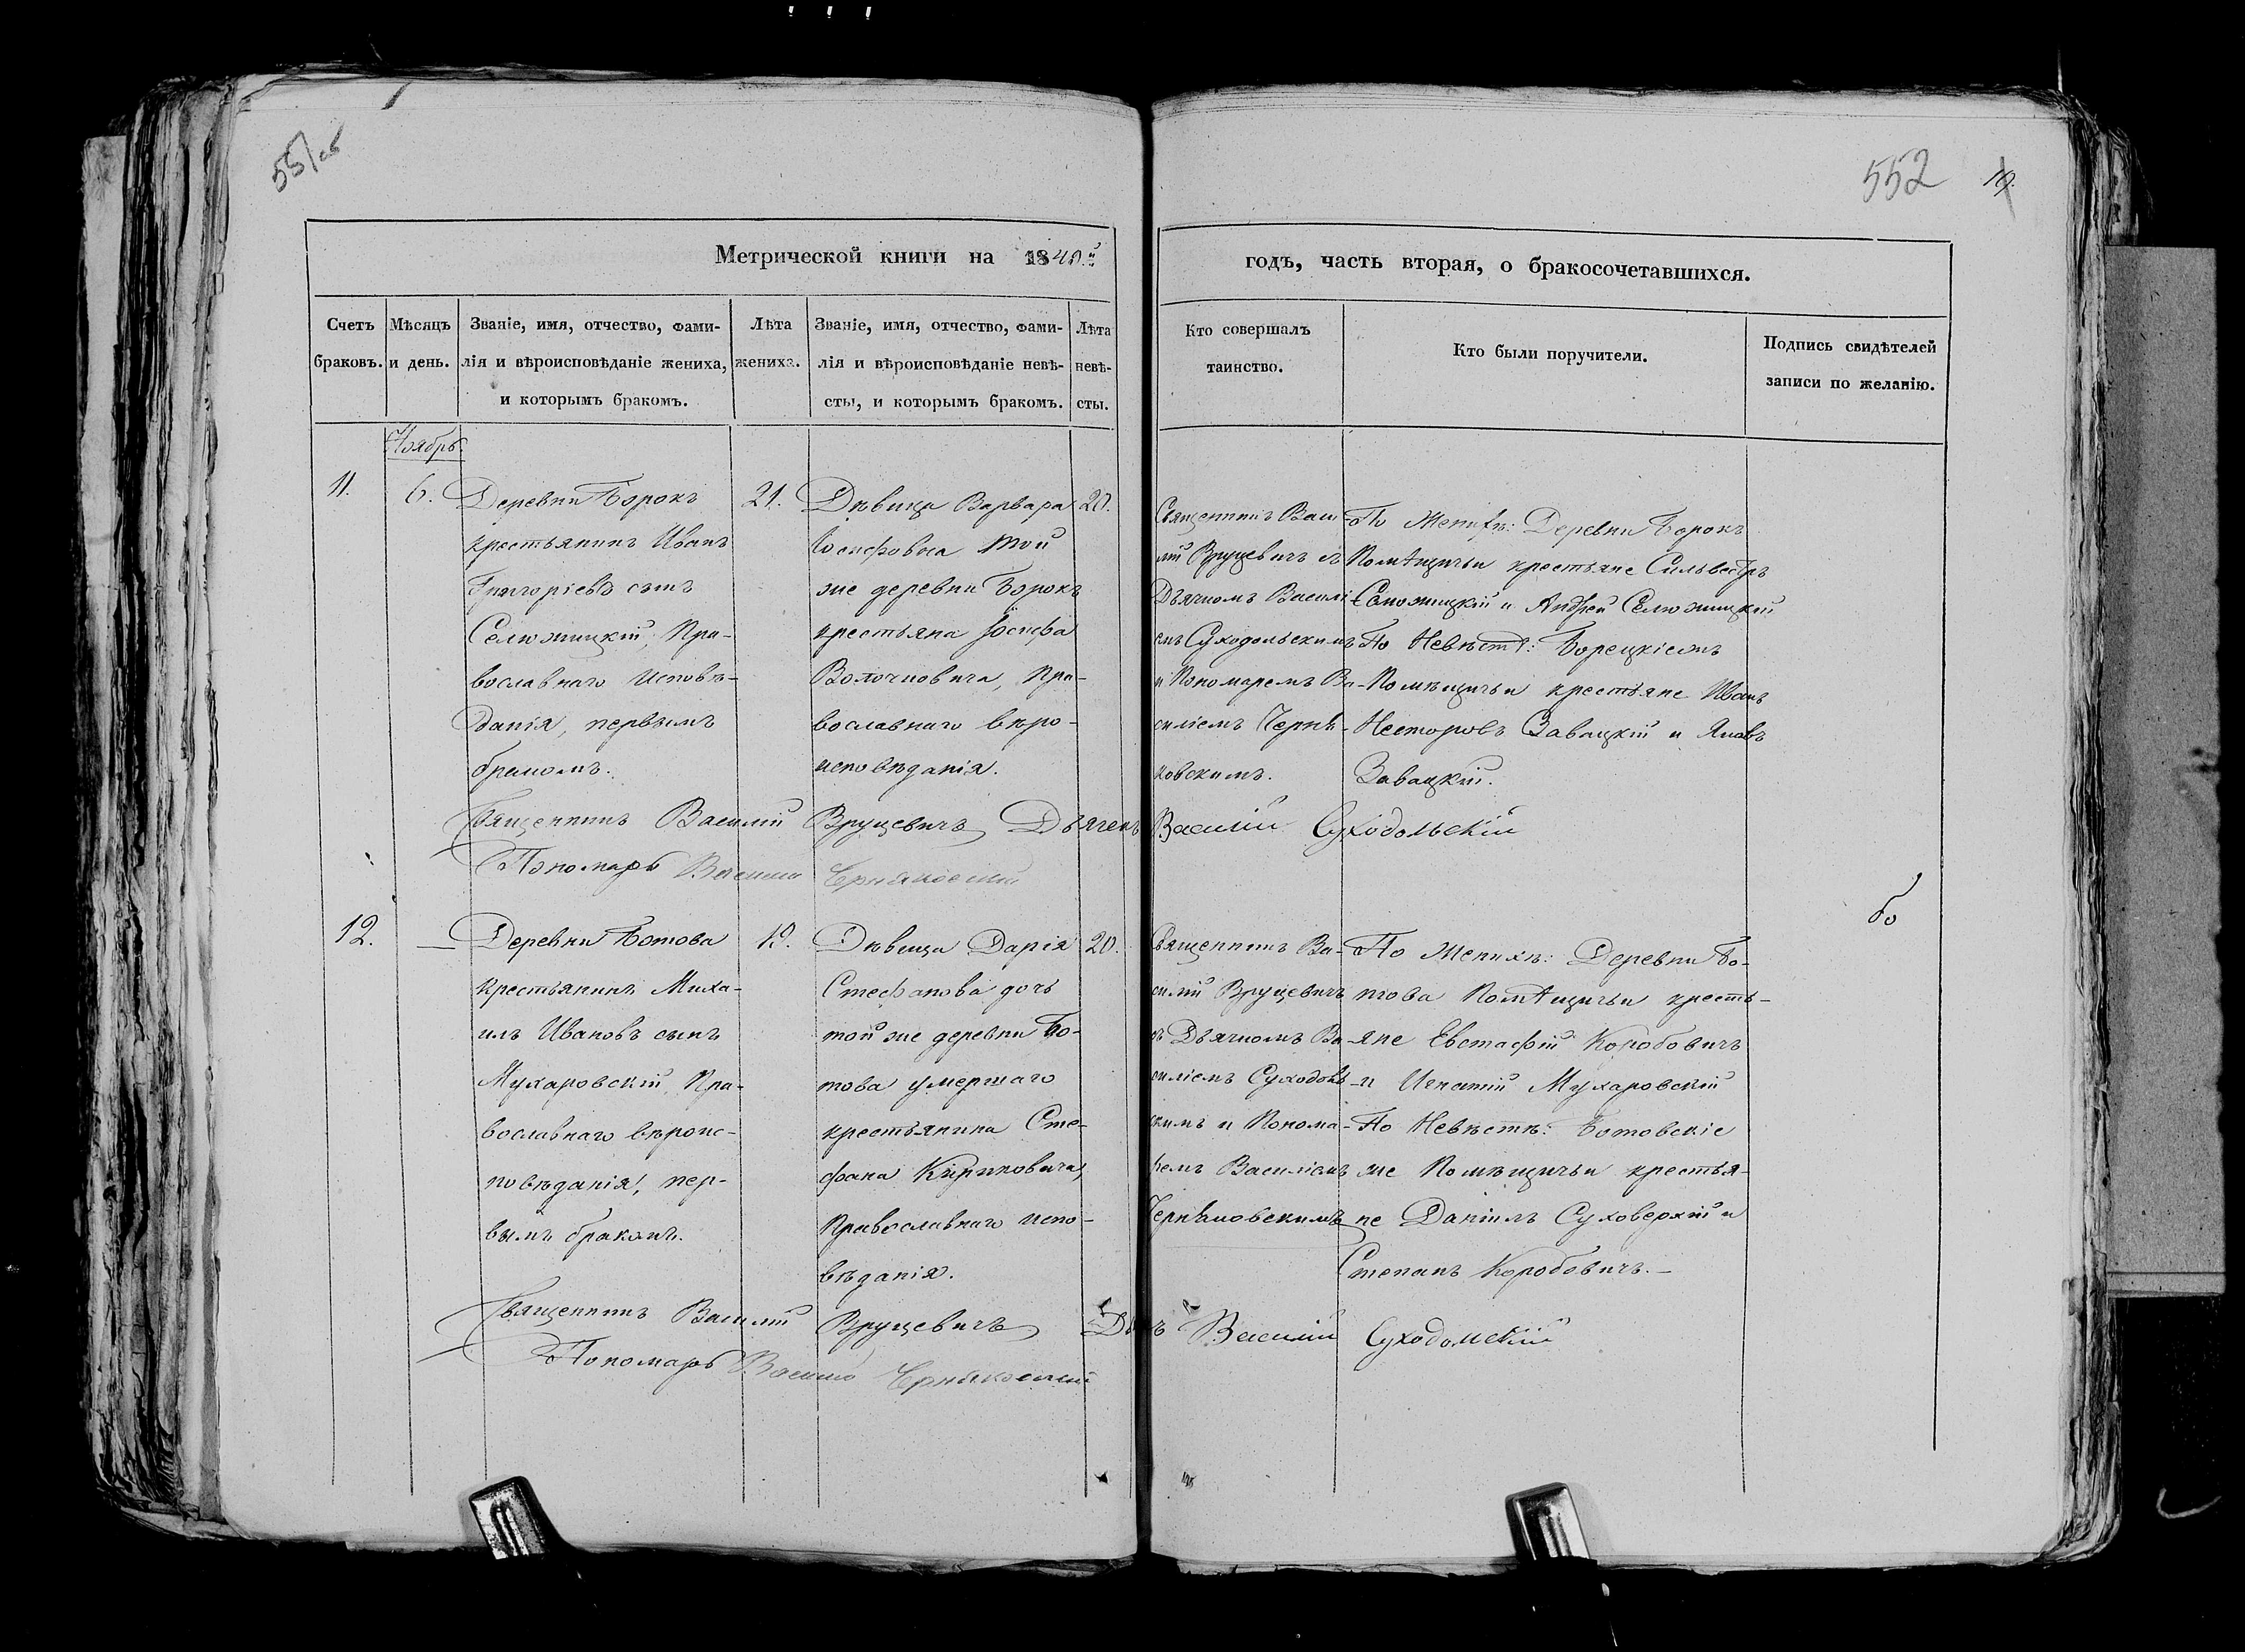 551об
552
Метрической книги на 1840й
годъ, часть вторая, о бракосочетавшихся.
Счетъ
браковъ.
Мѣсяцъ
и день.
Званіе, имя, отчество, фами-
лія и вѣроисповѣданіе жениха,
и которымъ бракомъ.
Лѣта
жениха.
Званіе, имя, отчество, фами-
лія и вѣроисповѣданіе невѣ-
сты, и которымъ бракомъ.
Лѣта
невѣ-
сты.
Кто совершалъ
таинство.
Кто были поручители.
Подпись свидѣтелей
записи по желанію.
Ноябрь.
11.
6.
Деревни Борокъ
крестьянинъ Иванъ
Григоріевъ сынъ
Селюжицкій, Пра-
вославнаго исповѣ-
данія, первымъ
бракомъ.
21.
Дѣвица Варвара
Іосифовна той
же деревни Борокъ
крестьяна Іосифа
Волочновича, Пра-
вославнаго вѣро-
исповѣданія.
20.
Священникъ Васи-
лій Вруцевичъ съ
Дьячкомъ Василі-
емъ Суходольскимъ
и Пономаремъ Ва-
силіемъ Черня-
ковскимъ.
По Женихѣ: Деревни Борокъ
Помѣщичьи крестьяне Сильвестръ
Селюжицкій и Андрей Селюжицкій
По Невѣстѣ: Борецкіежъ
Помѣщичьи крестьяне Иванъ
Несторовъ Завацкій и Яковъ
Завацкій.
Священникъ Василій Вруцевичъ Дьячекъ Василій Суходольскій
Пономарь Василий
12.
—
Деревни Ботова
крестьянинъ Миха-
илъ Ивановъ сынъ
Мухаровскій, Пра-
вославнаго вѣроис-
повѣданія, пер-
вымъ бракомъ.
19.
Дѣвица Дарія
Стефанова дочь
той же деревни Бо-
това умершаго
крестьянина Сте-
фана Кириковича,
Православнаго испо-
вѣданія.
20.
Священникъ Ва-
силій Вруцевичъ
съ Дьячкомъ Ва-
силіемъ Суходоль-
скимъ и Понома-
ремъ Василіемъ
Черняковскимъ
По Женихѣ: Деревни Бо-
това Помѣщичьи кресть-
яне Евстафій Коробовичъ
и Игнатій Мухаровскій
По Невѣстѣ: Ботовскіе
же Помѣщичьи крестья-
не Даніилъ Суховерхій и
Степанъ Коробовичъ.—
Священникъ Василій Вруцевичъ Василій Суходольскій
Пономарь Василий